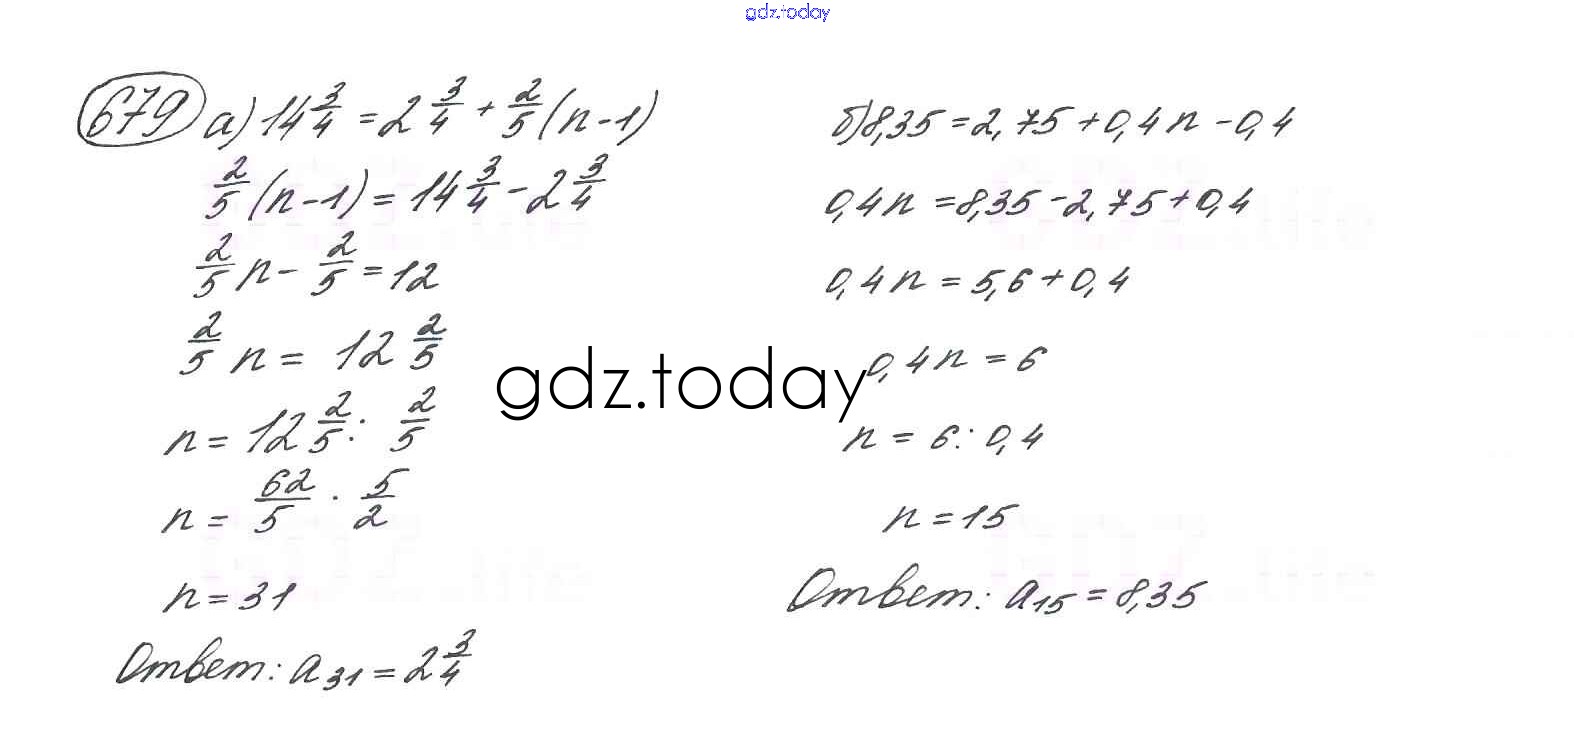 gdz.today
679 а) 14 3/4 = 2 3/4 + 2/5 (n-1)
2/5 (n-1) = 14 3/4 - 2 3/4
2/5 n - 2/5 = 12
2/5 n = 12 2/5
n = 12 2/5 : 2/5
n = 62/5 · 5/2
n = 31
Ответ: a₃₁ = 2 3/4
б) 8,35 = 2,75 + 0,4n - 0,4
0,4n = 8,35 - 2,75 + 0,4
0,4n = 5,6 + 0,4
0,4n = 6
n = 6 : 0,4
n = 15
Ответ: a₁₅ = 8,35
gdz.today
GDZ.life
GDZ.life
GDZ.life
GDZ.life